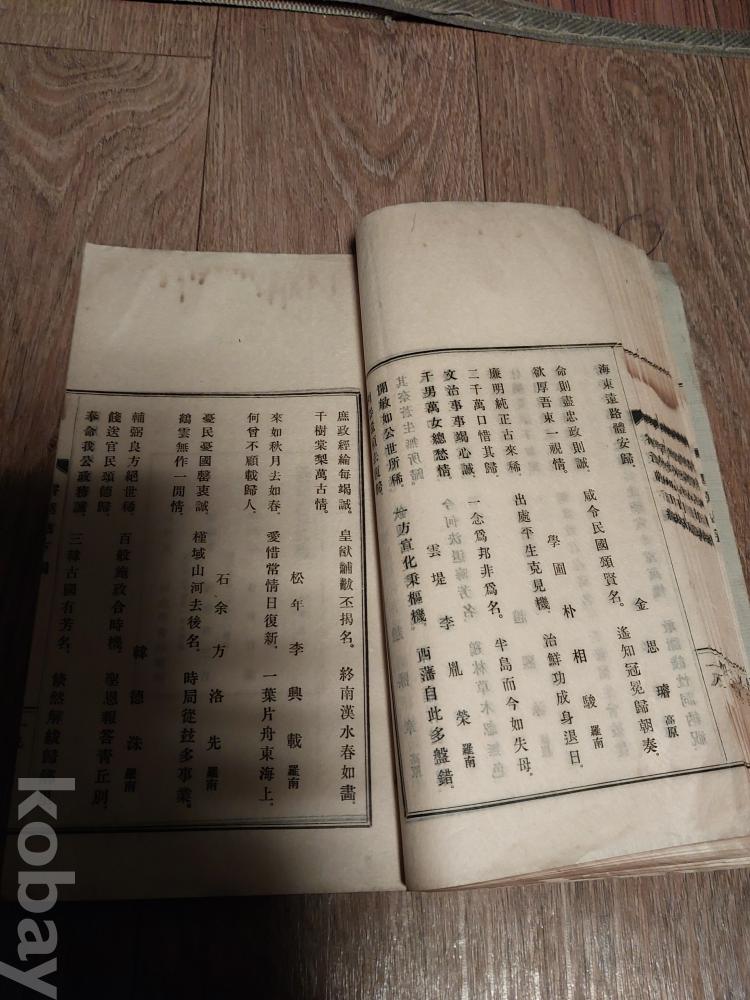 海東遠路體安歸。
金思璿 高原
命則盡忠政則誠。 咸令民國頌賢名。 遙知冠冕歸朝奏。
欲厚吾東一視情。
學圃 朴相駿 羅南
廉明純正古來稀。 出處平生克見機。 治鮮功成身退日。
二千萬口惜其歸。
文治事事竭心誠。 一念為邦非為名。 半島而今如失母。
千男萬女總愁情。
雲堤 李胤榮 羅南
開敏如公世所稀。 方宣化秉樞機。 西藩自此多盤錯。
庶政經綸每竭誠。 皇猷黼黻丕揭名。 終南漢水春如畫。
千樹棠梨萬古情。
松年 李興載 羅南
來如秋月去如春。 愛惜常情日復新。 一葉片舟東海上。
何曾不顧載歸人。
石余 方洛先 羅南
憂民憂國罄衷誠。 槿域山河去後名。 時局從玆多事業。
鶴雲無作一閒情。
韓德洙 羅南
輔弼良方絕世稀。 百般施政合時機。 聖恩報答靑丘別。
餞送官民頌德歸。
奉命我公政務誠。 三韓古國有芳名。 倏然解紱歸
kobay